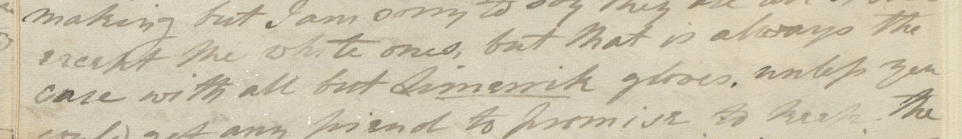 making but I am sorry to say they are all
except the white ones, but that is always the
case with all but Limerick gloves. unless you
could get any friend to promise to keep the